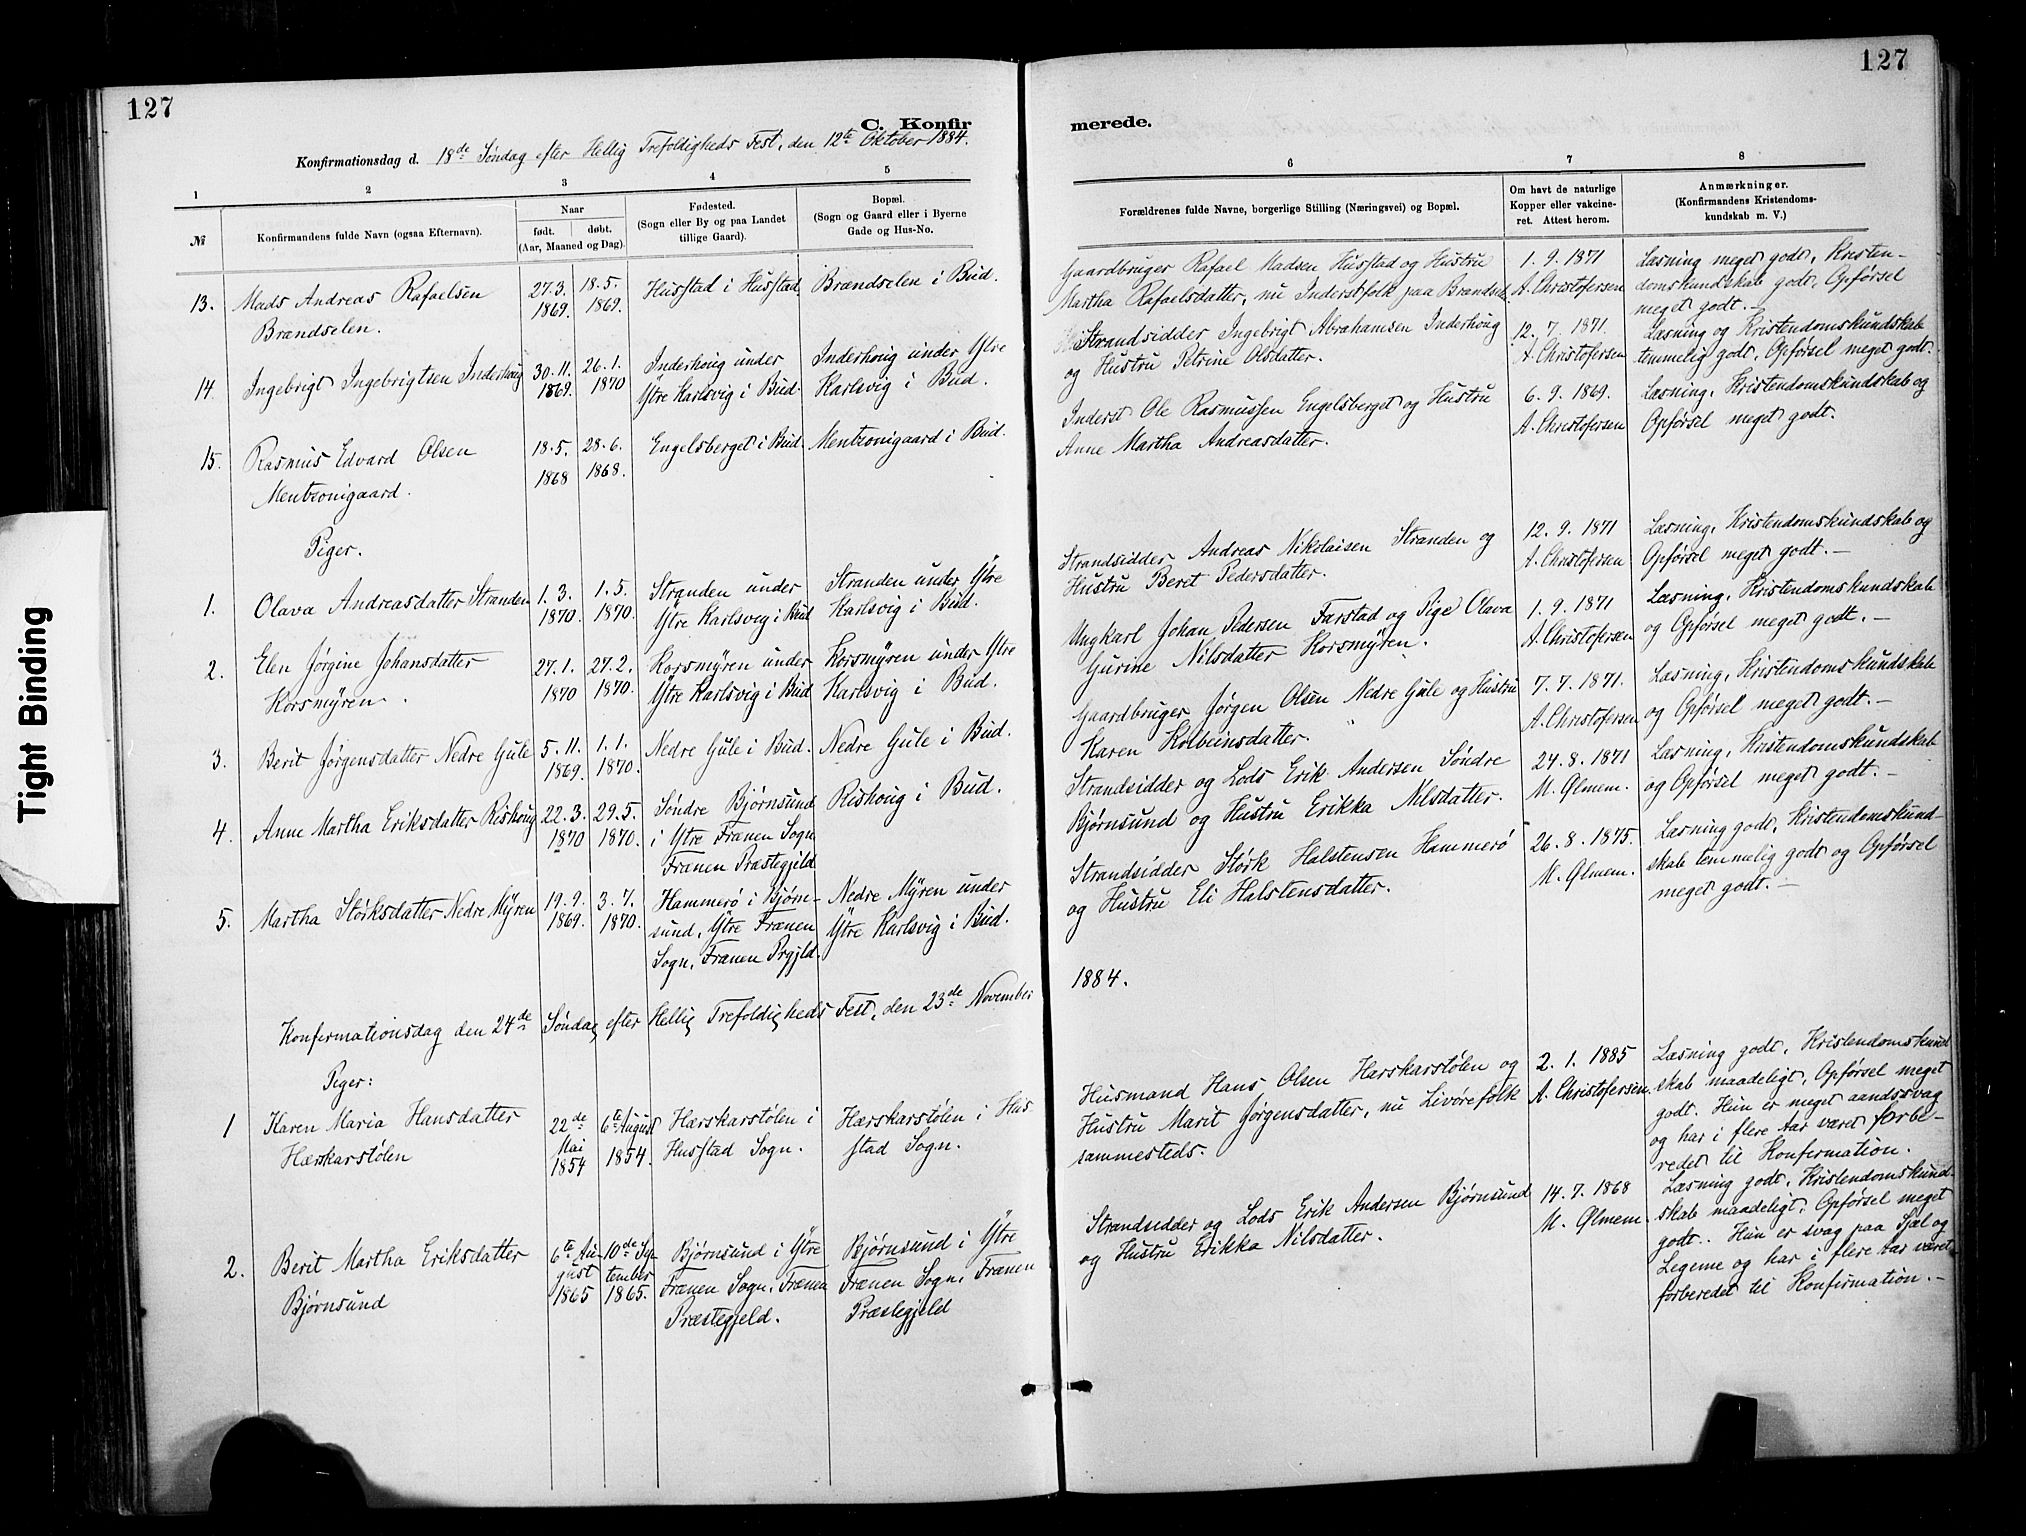 127
127
C. Konfir
merede.
Konfirmationsdag d. 18de Søndag efter Hellig Trefoldigheds Fest, den 12te Oktober 1884.
1 2 3 4 5
6 7 8
№
Konfirmandens fulde Navn (ogsaa Efternavn).
Naar
født. døbt.
(Aar, Maaned og Dag).
Fødested.
(Sogn eller By og paa Landet
tillige Gaard).
Bopæl.
(Sogn og Gaard eller i Byerne
Gade og Hus-No.
Forældrenes fulde Navne, borgerlige Stilling (Næringsvei) og Bopæl.
Om havt de naturlige
Kopper eller vakcine-
ret. Attest herom.
Anmærkninger.
(Konfirmandens Kristendoms-
kundskab m. V.)
13. Mads Andreas Rafaelsen
Brændselen.
27.3.
1869.
18.5.
1869.
Husstad i Husstad
Brændselen i Bud.
Gaardbruger Rafael Madsen Husstad og Hustru
Martha Rafaelsdatter, nu Inderstfolk paa Brændsel.
1. 9. 1871
A. Christofersen
Læsning meget godt, Kristen-
domskundskab godt, Opførsel
meget godt. –
14. Ingebrigt Ingebrigtsen Inderhoug
30.11.
1869.
26.1.
1870
Inderhoug under
Ytre Karlsvig i Bud.
Inderhoug under Ytre
Karlsvig i Bud.
Strandsidder Ingebrigt Abrahamsen Inderhoug
og Hustru Petrine Olsdatter.
12. 7. 1871.
A. Christofersen
Læsning og Kristendomskundskab
temmelig godt, Opførsel meget godt.
15. Rasmus Edvard Olsen
Mentzonigaard.
18.5.
1868
28.6.
1868.
Engelsberget i Bud
Mentzonigaard i Bud.
Inderst Ole Rasmussen Engelsberget og Hustru
Anne Martha Andreasdatter.
6. 9. 1869.
A. Christofersen
Læsning, Kristendomskundskab og
Opførsel meget godt.
Piger.
1. Olava Andreasdatter Stranden
1.3.
1870.
1.5.
1870.
Stranden under
Ytre Karlsvig i Bud
Stranden under Ytre
Karlsvig i Bud.
Strandsidder Andreas Nikolaisen Stranden og
Hustru Beret Pedersdatter.
12. 9. 1871
A. Christofersen
Læsning, Kristendomskundskab og
Opførsel meget godt. –
2. Elen Jørgine Johansdatter
Korsmyren.
27.1.
1870
27.2.
1870.
Korsmyren under
Ytre Karlsvig i Bud
Korsmyren under Ytre
Karlsvig i Bud.
Ungkarl Johan Pedersen Farstad og Pige Olava
Gurine Nilsdatter Korsmyren.
1. 9. 1871
A. Christofersen
Læsning, Kristendomskundskab
og Opførsel meget godt. –
3. Berit Jørgensdatter Nedre Gule
5.11.
1869.
1.1.
1870.
Nedre Gule i Bud.
Nedre Gule i Bud.
Gaardbruger Jørgen Olsen Nedre Gule og Hustru
Karen Kolbeinsdatter.
7. 7. 1871.
A. Christofersen
Læsning, Kristendomskundskab
og Opførsel meget godt. –
4. Anne Martha Eriksdatter Rishoug
22.3.
1870
29.5.
1870.
Søndre Bjørnsund
i Ytre Frænen Sogn
Frænen Præstegjeld
Rishoug i Bud.
Strandsidder og Lods Erik Andersen Søndre
Bjørnsund og Hustru Erikka Nilsdatter.
24. 8. 1871
M. Glmem.
Læsning, Kristendomskundskab
og Opførsel meget godt. –
5. Martha Størksdatter Nedre Myren
19.9.
1869.
3.7.
1870.
Hammerø i Bjørn-
sund, Ytre Frænen
Sogn, Frænen Prgjld.
Nedre Myren under
Ytre Karlsvig i Bud.
Strandsidder Størk Halstensen Hammerø
og Hustru Eli Halstensdatter.
26. 8. 1875.
M. Glmem.
Læsning godt, Kristendomskund-
skab temmelig godt og Opførsel
meget godt. –
Konfirmationsdag den 24de Søndag efter Hellig Trefoldigheds Fest, den 23de November
1884.
Piger:
1 Karen Maria Hansdatter
Hærskarstølen
22de
Mai
1854
6te August
1854.
Hærskarstølen i
Husstad Sogn.
Hærskarstølen i Hus
stad Sogn.
Husmand Hans Olsen Hærskarstølen og
Hustru Marit Jørgensdatter, nu Livørefolk
sammesteds.
2. 1. 1885
A. Christofersen.
Læsning godt, Kristendomskund
skab maadeligt, Opførsel meget
godt. Hun er meget aandssvag
og har i flere Aar været forbe-
redet til Konfirmation.
2. Berit Martha Eriksdatter
Bjørnsund
6te Au-
gust
1865
10de Sep
tember
1865.
Bjørnsund i Ytre
Frænen Sogn, Frænen
Præstegjeld.
Bjørnsund i Ytre
Frænen Sogn, Frænen
Præstegjeld
Strandsidder og Lods Erik Andersen Bjørnsund
og Hustru Erikka Nilsdatter.
14. 7. 1868
M. Glmem.
Læsning godt, Kristendomskund-
skab maadeligt, Opførsel meget
godt. Hun er svag paa Sjæl og
Legeme og har i flere Aar været
forberedet til Konfirmation. –
Tight Binding